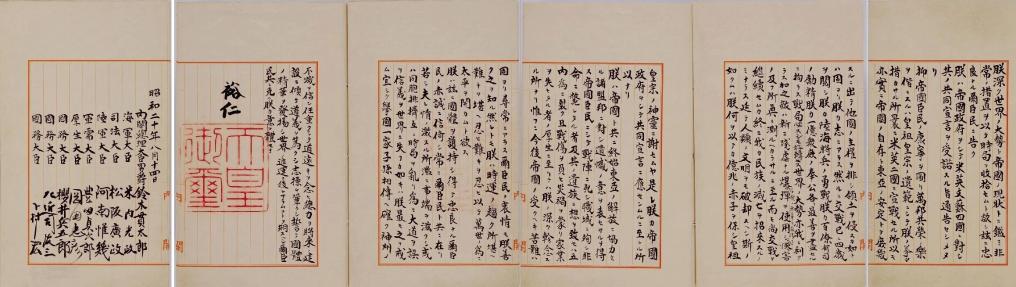 朕深ク世界ノ大勢ト帝國ノ現狀トニ鑑ミ非
常ノ措置ヲ以テ時局ヲ收拾セムト欲シ茲ニ忠
良ナル爾臣民ニ告ク
朕ハ帝國政府ヲシテ米英支蘇四國ニ對シ
其ノ共同宣言ヲ受諾スル旨通告セシメタ
リ
抑〻帝國臣民ノ康寧ヲ圖リ萬邦共榮ノ樂
ヲ偕ニスルハ皇祖皇宗ノ遺範ニシテ朕ノ拳々
措カサル所曩ニ米英二國ニ宣戰セル所以モ
亦實ニ帝國ノ自存ト東亞ノ安定トヲ庶幾
スルニ出テ他國ノ主權ヲ排シ領土ヲ侵スカ如キ
ハ固ヨリ朕カ志ニアラス然ルニ交戰已ニ四歲
ヲ閱シ朕カ陸海將兵ノ勇戰朕カ百僚有司
ノ勵精朕カ一億衆庶ノ奉公各〻最善ヲ盡セル
ニ拘ラス戰局必スシモ好轉セス世界ノ大勢亦我ニ利
アラス加之敵ハ新ニ殘虐ナル爆彈ヲ使用シテ頻ニ無辜ヲ殺傷シ慘害ノ
及フ所眞ニ測ルヘカラサルニ至ル而モ尚交戰ヲ
繼續セムカ終ニ我カ民族ノ滅亡ヲ招來スル
ノミナラス延テ人類ノ文明ヲモ破却スヘシ斯ノ
如クムハ朕何ヲ以テカ億兆ノ赤子ヲ保シ皇祖
皇宗ノ神靈ニ謝セムヤ是レ朕カ帝國
政府ヲシテ共同宣言ニ應セシムルニ至レル所
以ナリ
朕ハ帝國ト共ニ終始東亞ノ解放ニ協力セ
ル諸盟邦ニ對シ遺憾ノ意ヲ表セサルヲ得
ス帝國臣民ニシテ戰陣ニ死シ職域ニ殉シ非
命ニ斃レタル者及其ノ遺族ニ想ヲ致セハ五
內爲ニ裂ク且戰傷ヲ負ヒ災禍ヲ蒙リ家業
ヲ失ヒタル者ノ厚生ニ至リテハ朕ノ深ク軫念ス
ル所ナリ惟フニ今後帝國ノ受クヘキ苦難ハ
固ヨリ尋常ニアラス爾臣民ノ衷情モ朕善
ク之ヲ知ル然レトモ朕ハ時運ノ趨ク所堪ヘ
難キヲ堪ヘ忍ヒ難キヲ忍ヒ以テ萬世ノ爲ニ
太平ヲ開カムト欲ス
朕ハ茲ニ國體ヲ護持シ得テ忠良ナル爾臣
民ノ赤誠ニ信倚シ常ニ爾臣民ト共ニ在リ
若シ夫レ情ノ激スル所濫ニ事端ヲ滋クシ或
ハ同胞排擠互ニ時局ヲ亂リ爲ニ大道ヲ誤
リ信義ヲ世界ニ失フカ如キハ朕最モ之ヲ戒
ム宜シク擧國一家子孫相傳ヘ確ク神州ノ
不滅ヲ信シ任重クシテ道遠キヲ念ヒ總力ヲ將來ノ建
設ニ傾ケ道義ヲ篤クシ志操ヲ鞏クシ誓テ國體
ノ精華ヲ發揚シ世界ノ進運ニ後レサラムコトヲ期スヘシ爾臣
民其レ克ク朕カ意ヲ體セヨ
裕仁
天皇御璽
昭和二十年八月十四日
內閣總理大臣男爵鈴木貫太郎
海軍大臣米內光政
司法大臣松阪廣政
陸軍大臣阿南惟幾
軍需大臣豊田貞次郎
厚生大臣岡田忠彥
國務大臣櫻井兵五郎
國務大臣左近司政三
國務大臣下村宏